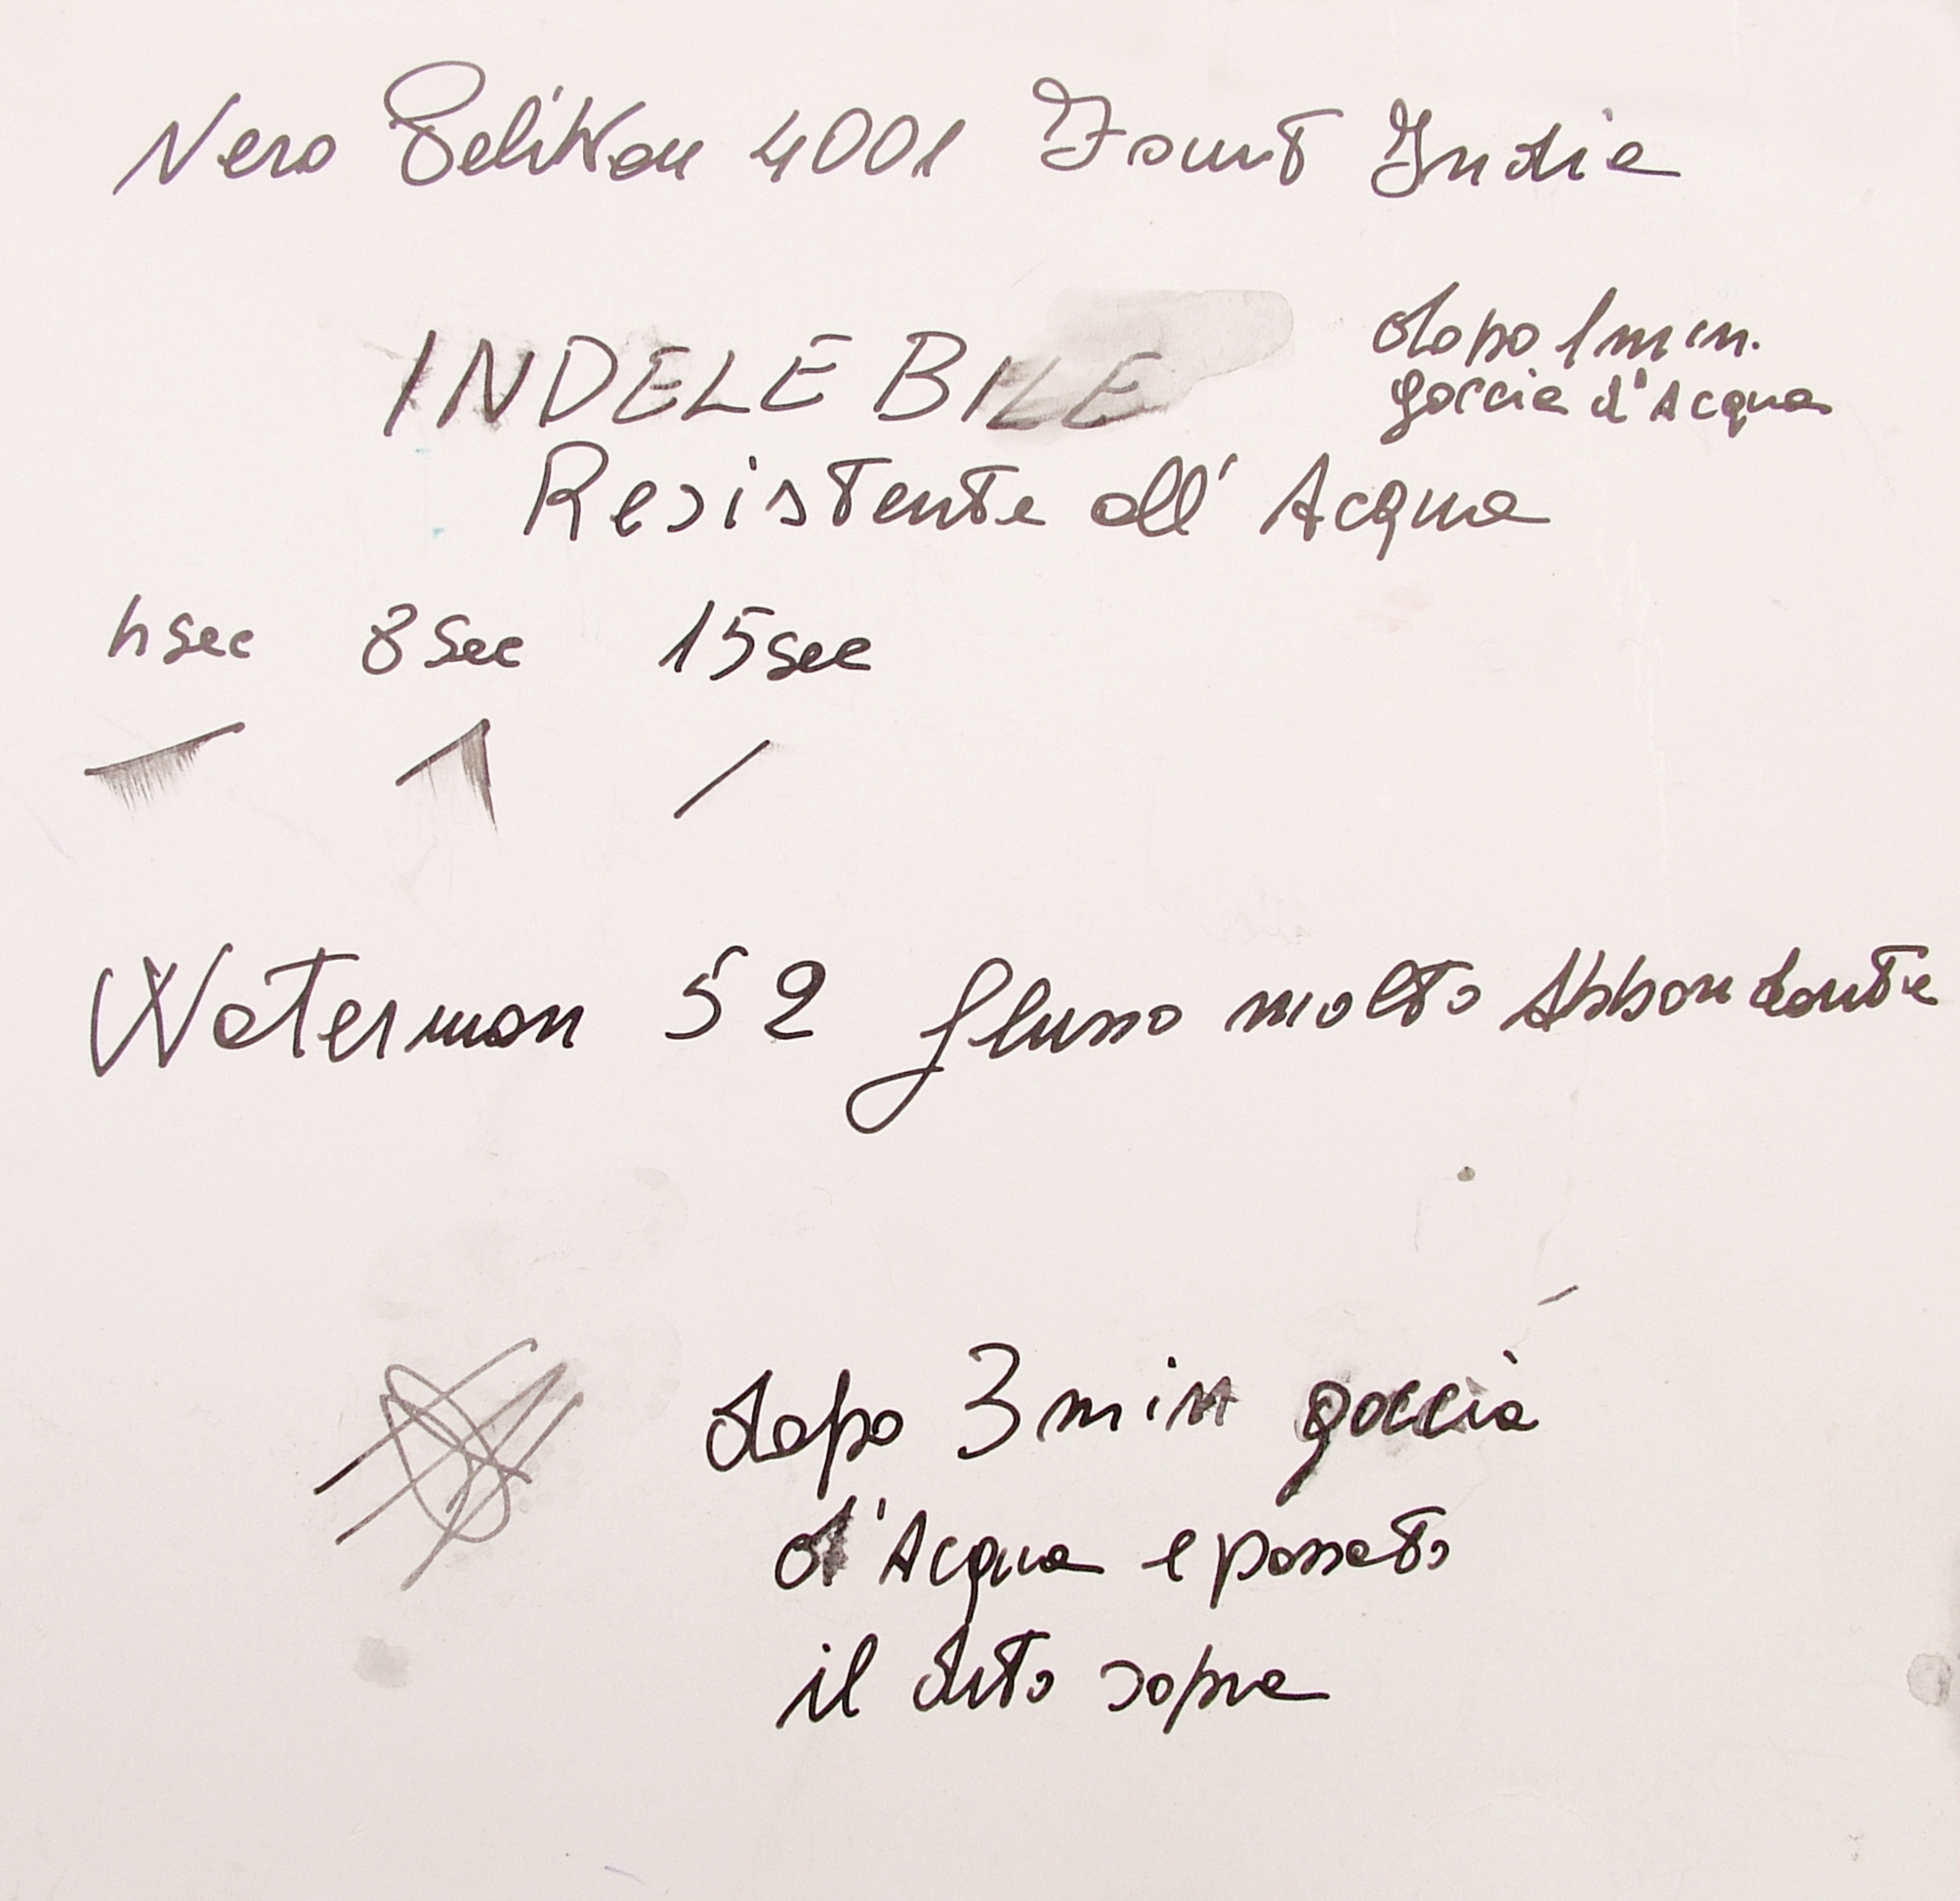 Nero Pelikan 4001 Fount India
INDELEBILE
dopo 1 min.
goccia d'Acqua
Resistente all' Acqua
4 sec 8 sec 15 sec
Waterman 52 flusso molto Abbondante
dopo 3 min goccia
d'Acqua e passato
il dito sopra